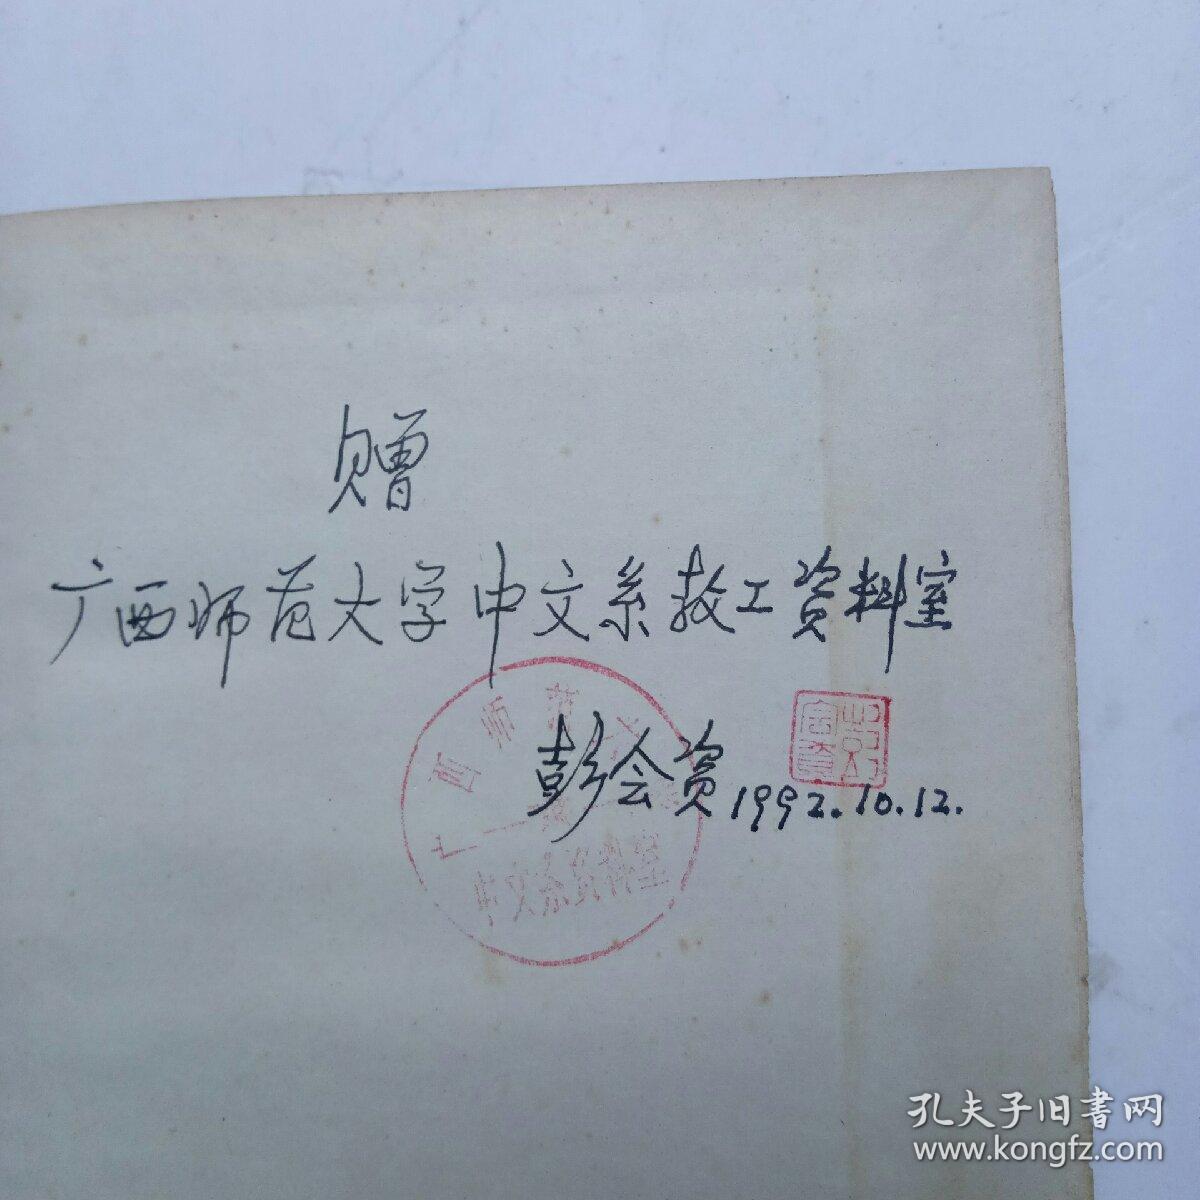 赠
广西师范大学中文系教工资料室
彭会资 1992.10.12.
彭会资
广西师范大学
中文系资料室
孔夫子旧书网
www.kongfz.com